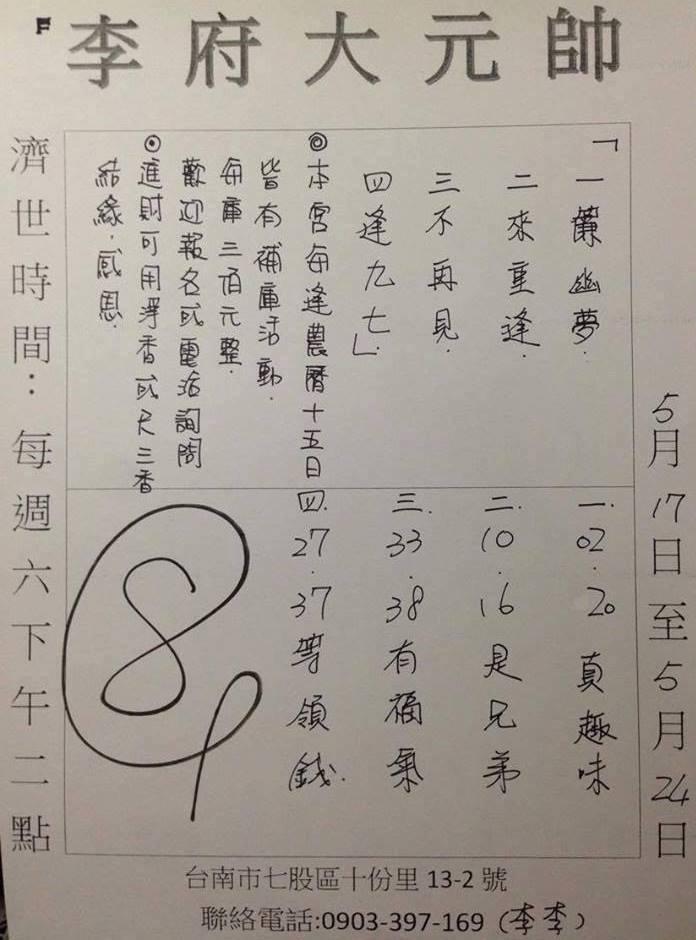 李府大元帥
5月17日至5月24日
「一簾幽夢.
二來重逢.
三不再見.
四逢九七」.
◎本宮每逢農曆十五日
皆有補庫活動.
每庫三佰元整.
歡迎報名或電話詢問
⊙進財可用淨香或尺三香
結緣.感恩.
一.02.20真趣味
二.10.16是兄弟
三.33.38有福氣
四.27.37等領錢.
濟世時間：每週六下午二點
台南市七股區十份里13-2號
聯絡電話:0903-397-169（李李）